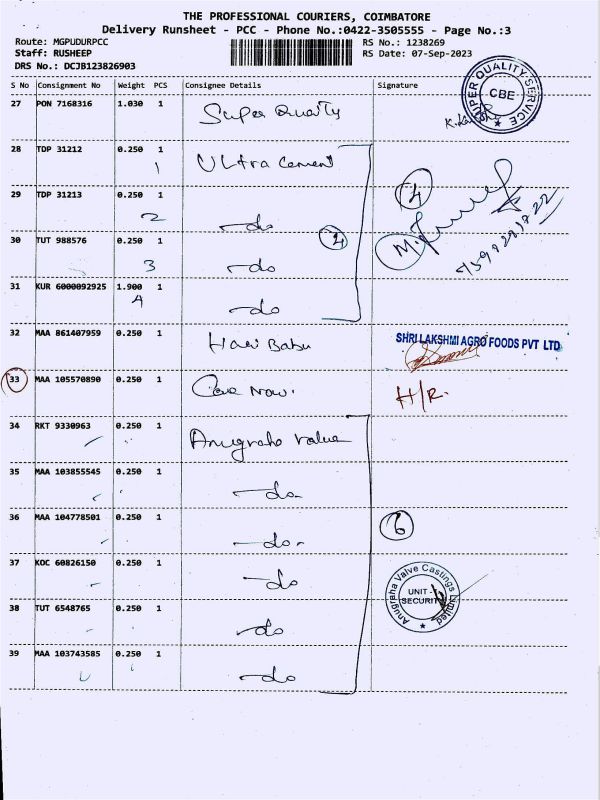 THE PROFESSIONAL COURIERS, COIMBATORE
Delivery Runsheet - PCC - Phone No.:0422-3505555 - Page No.:3
Route: MGPUDURPCC RS No.: 1238269
Staff: RUSHEEP RS Date: 07-Sep-2023
DRS No.: DCJB123826903
S No Consignment No Weight PCS Consignee Details Signature
27 PON 7168316 1.030 1 Super Quality
SUPER QUALITY SERVICE CBE
28 TDP 31212 0.250 1 Ultra Cement
1
29 TDP 31213 0.250 1 -do
2
4
4
30 TUT 988576 0.250 1 -do
3
31 KUR 6000092925 1.900 1 -do
4
32 MAA 861407959 0.250 1 Hari Babu SHRI LAKSHMI AGRO FOODS PVT LTD
33 MAA 105570890 0.250 1 Now. H/R.
34 RKT 9330963 0.250 1 Anugraha Value
35 MAA 103855545 0.250 1 -do-
36 MAA 104778501 0.250 1 -do- 6
37 KOC 60826150 0.250 1 -do
Anugraha Valve Castings Limited
UNIT -
SECURITY
38 TUT 6548765 0.250 1 -do
39 MAA 103743585 0.250 1 -do